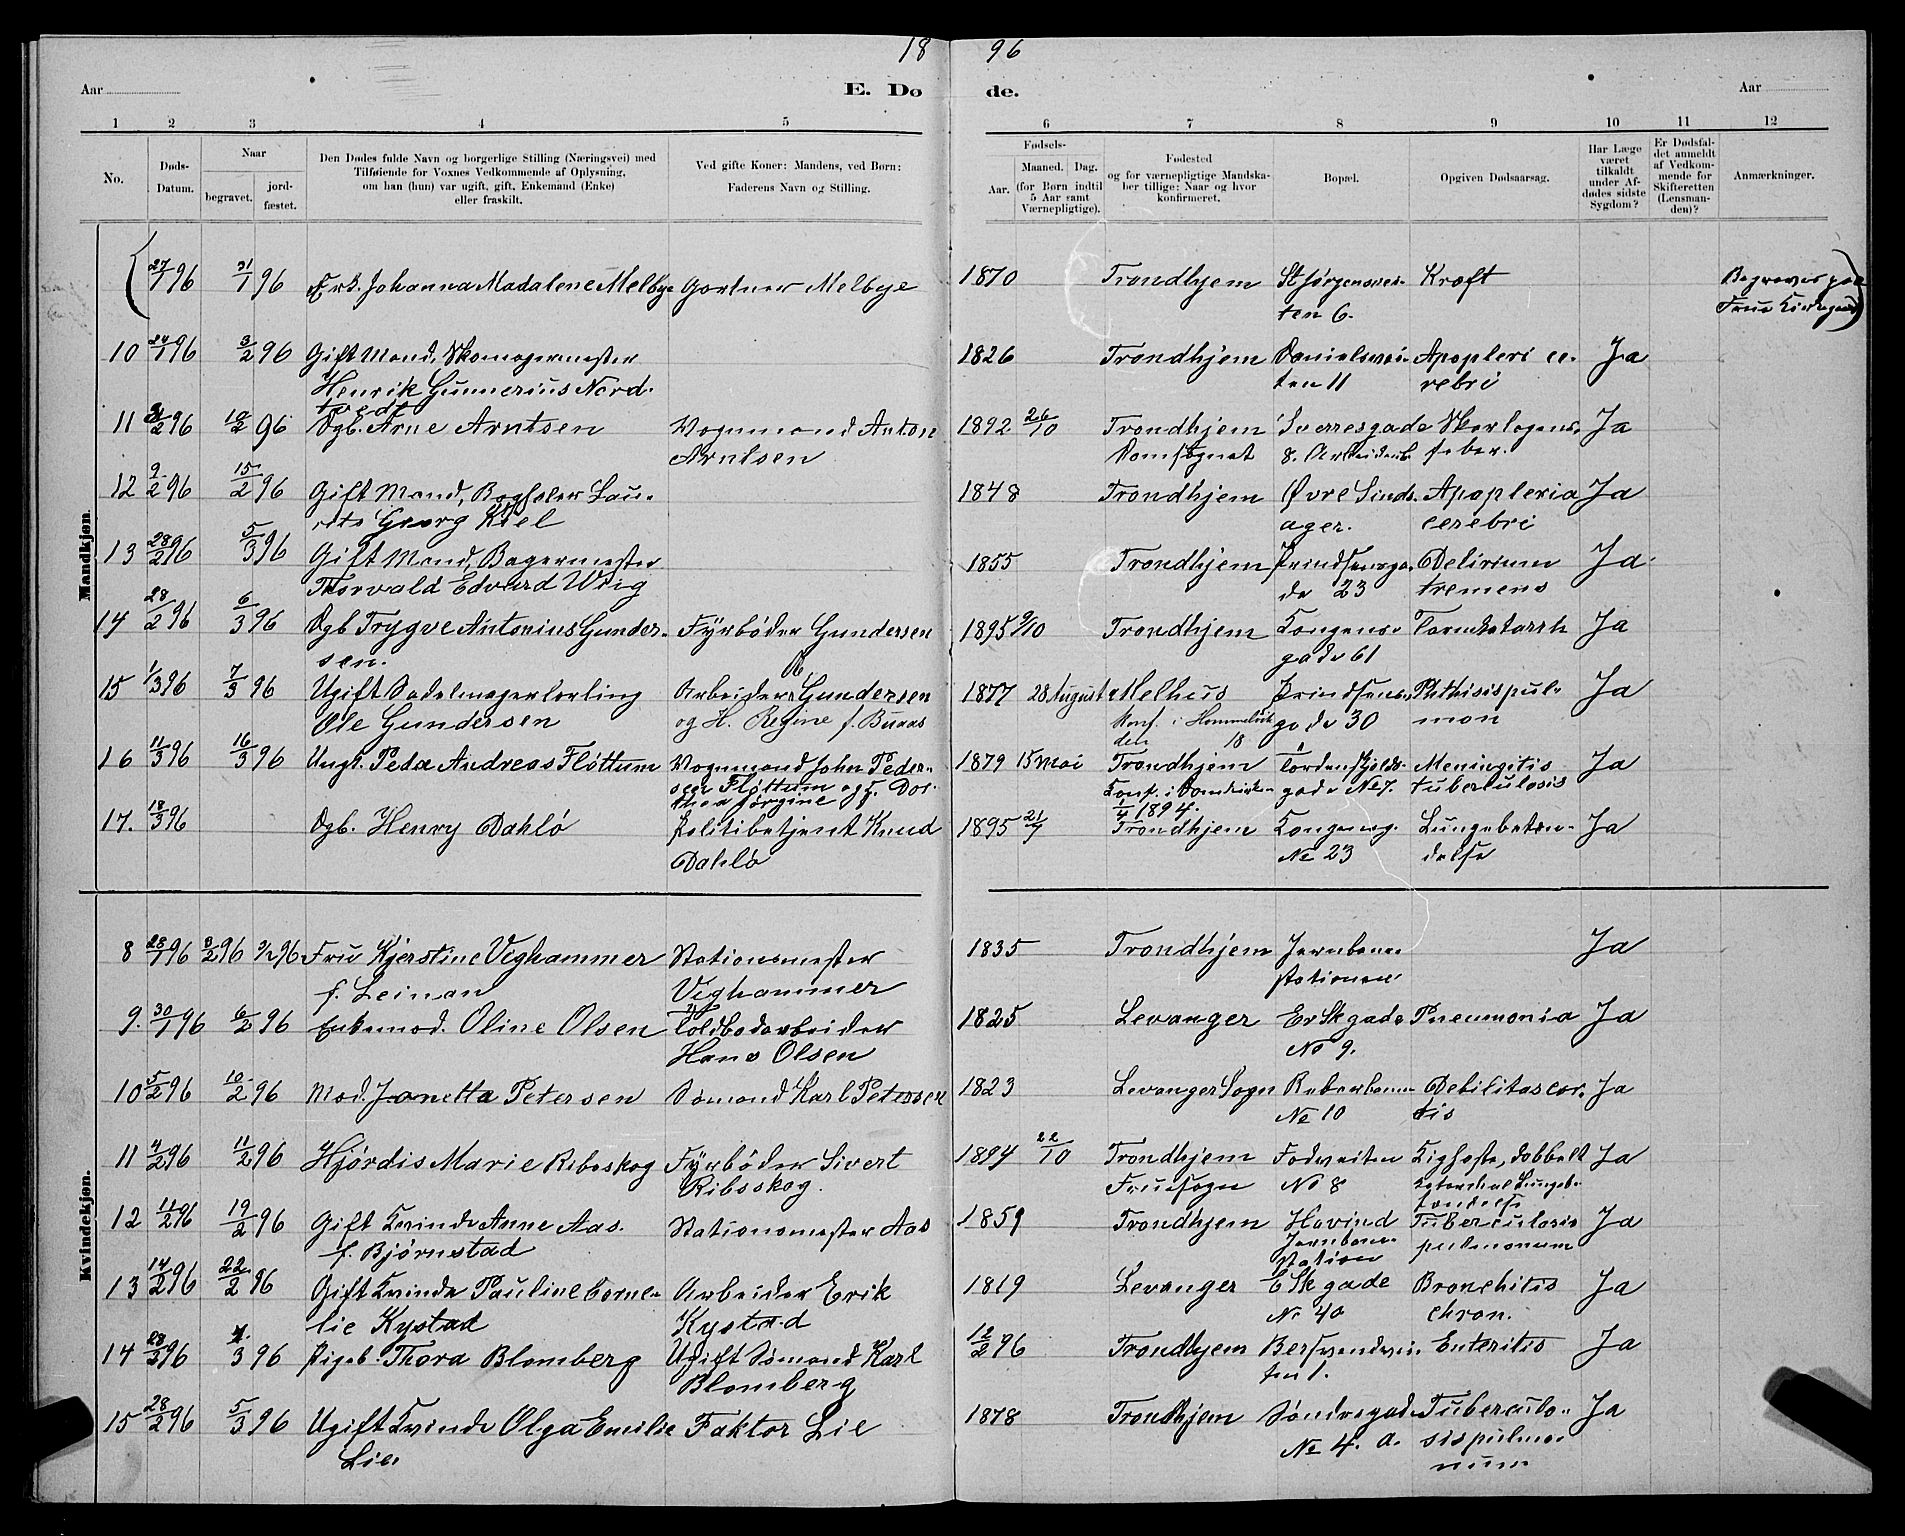 18 96
Aar
E. Dø de.
Aar
1 2 3 4 5 6 7 8 9 10 11 12
No.
Døds-Datum.
Naar
begravet.
jord-fæstet.
Den Dødes fulde Navn og borgerlige Stilling (Næringsvei) med
Tilføiende for Voxnes Vedkommende af Oplysning,
om han (hun) var ugift, gift, Enkemand (Enke)
eller fraskilt.
Ved gifte Koner: Mandens, ved Børn:
Faderens Navn og Stilling.
Fødsels-
Aar.
Maaned. Dag.
(for Børn indtil
5 Aar samt
Værnepligtige).
Fødested
og for værnepligtige Mandska-
ber tillige: Naar og hvor
konfirmeret.
Bopæl.
Opgiven Dødsaarsag.
Har Læge
været
tilkaldt
under Af-
dødes sidste
Sygdom?
Er Dødsfal-
det anmeldt
af Vedkom-
mende for
Skifteretten
(Lensman-
den)?
Anmærkninger.
Mandkjøn.
( 27/1 96 31/1 96 Frk. Johanna Madalene Melbye Gartner Melbye 1870 Trondhjem St Jørgensvei- Kræft Begraves paa
ten 6. Frue Kirkegaard )
10 24/1 96 3/2 96 Gift Mand, Skomagermester 1826 Trondhjem Danielsvei- Apoplexi ce- Ja
Henrik Gunnerius Nord- ten 11 rebri
tvedt
11 3/2 96 10/2 96 Dgb. Arne Arntsen Vognmand Anton 1892 26/10 Trondhjem Sverresgade Skarlagens- Ja
Arntsen Domsognet 8. feber.
12 9/2 96 15/2 96 Gift Mand, Bogholder Lau- 1848 Trondhjem Øvre Apoplexia Ja
ritz Georg Kiel ager. cerebri
13 28/2 96 5/3 96 Gift Mand, Bagermester 1855 Trondhjem Prindsensga- Delirium Ja
Thorvald Edvard Wiig de 23 tremens
14 28/2 96 6/3 96 Dgb Trygve Antonius Gunder- Fyrbøder Gundersen 1895 9/10 Trondhjem Kongens- Tarmkatarrh Ja
sen. gade 61
15 1/3 96 7/3 96 Ugift Sadelmagerlærling Arbeider Gundersen 1877 28 August Melhus Prindsens- Phthisis pul- Ja
Ole Gundersen og H. Regine f. Buaas Konf. i Hommelvik gade 30 mon
den 18
16 11/3 96 16/3 96 Ungk. Peder Andreas Fløttum Vognmand John Peder- 1879 15 Mai Trondhjem Tordenskjolds- Meningitis Ja
sen Fløttum og f. Dor- Konf. i Domkirken gade No 7. tuberkulosis
thea Jørgine 1/4 1894.
17. 18/3 96 Dgb. Henry Dahlø Politibetjent Knud 1895 21/7 Trondhjem Kongensg. Lungebeten- Ja
Dahlø No 23 delse
Kvindekjøn.
8 28/1 96 3/2 96 3/2 96 Fru Kjerstine Veghammer Stationsmester 1835 Trondhjem Jernbane- Ja
f. Leinan Veghammer stationen
9. 30/1 96 6/2 96 Enkemad. Oline Olsen Toldbodarbeider 1825 Levanger Er Sk gade Pneumonia Ja
Hans Olsen No 9.
10 5/2 96 10/2 96 Mad. Janetta Petersen Sømand Karl Petersen 1823 Levanger Sogn Reberbanen Debilitas cor- Ja
No 10 dis
11 4/2 96 11/2 96 Hjørdis Marie Ribsskog Fyrbøder Sivert 1894 22/10 Trondhjem Fadveiten Kighoste, dobbelt Ja
Ribsskog. Fruesogn No 8 katarrhal Lungebe-
tendelse
12 11/2 96 19/2 96 Gift Kvinde Anne Aas. Stationsmester Aas 1859 Trondhjem Havind Tuberculosis Ja
f. Bjørnstad Jernbane- pulmonum
station
13 14/2 96 22/2 96 Gift Kvinde Pauline Corne- Arbeider Erik 1819 Levanger E Sk gade Bronchitis Ja
lie Kystad Kystad No 40 chron.
14 28/3 96 4/3 96 Pigeb. Thora Blomberg Ugift Sømand Karl 12/2 96 Trondhjem Bersvendvei- Enteritis Ja
Blomberg ten 1.
15 28/2 96 5/3 96 Ugift Kvinde Olga Emilie Faktor Lie 1878 Trondhjem Søndregade Tuberculo- Ja
Lie No 4. a. sis pulmo-
num